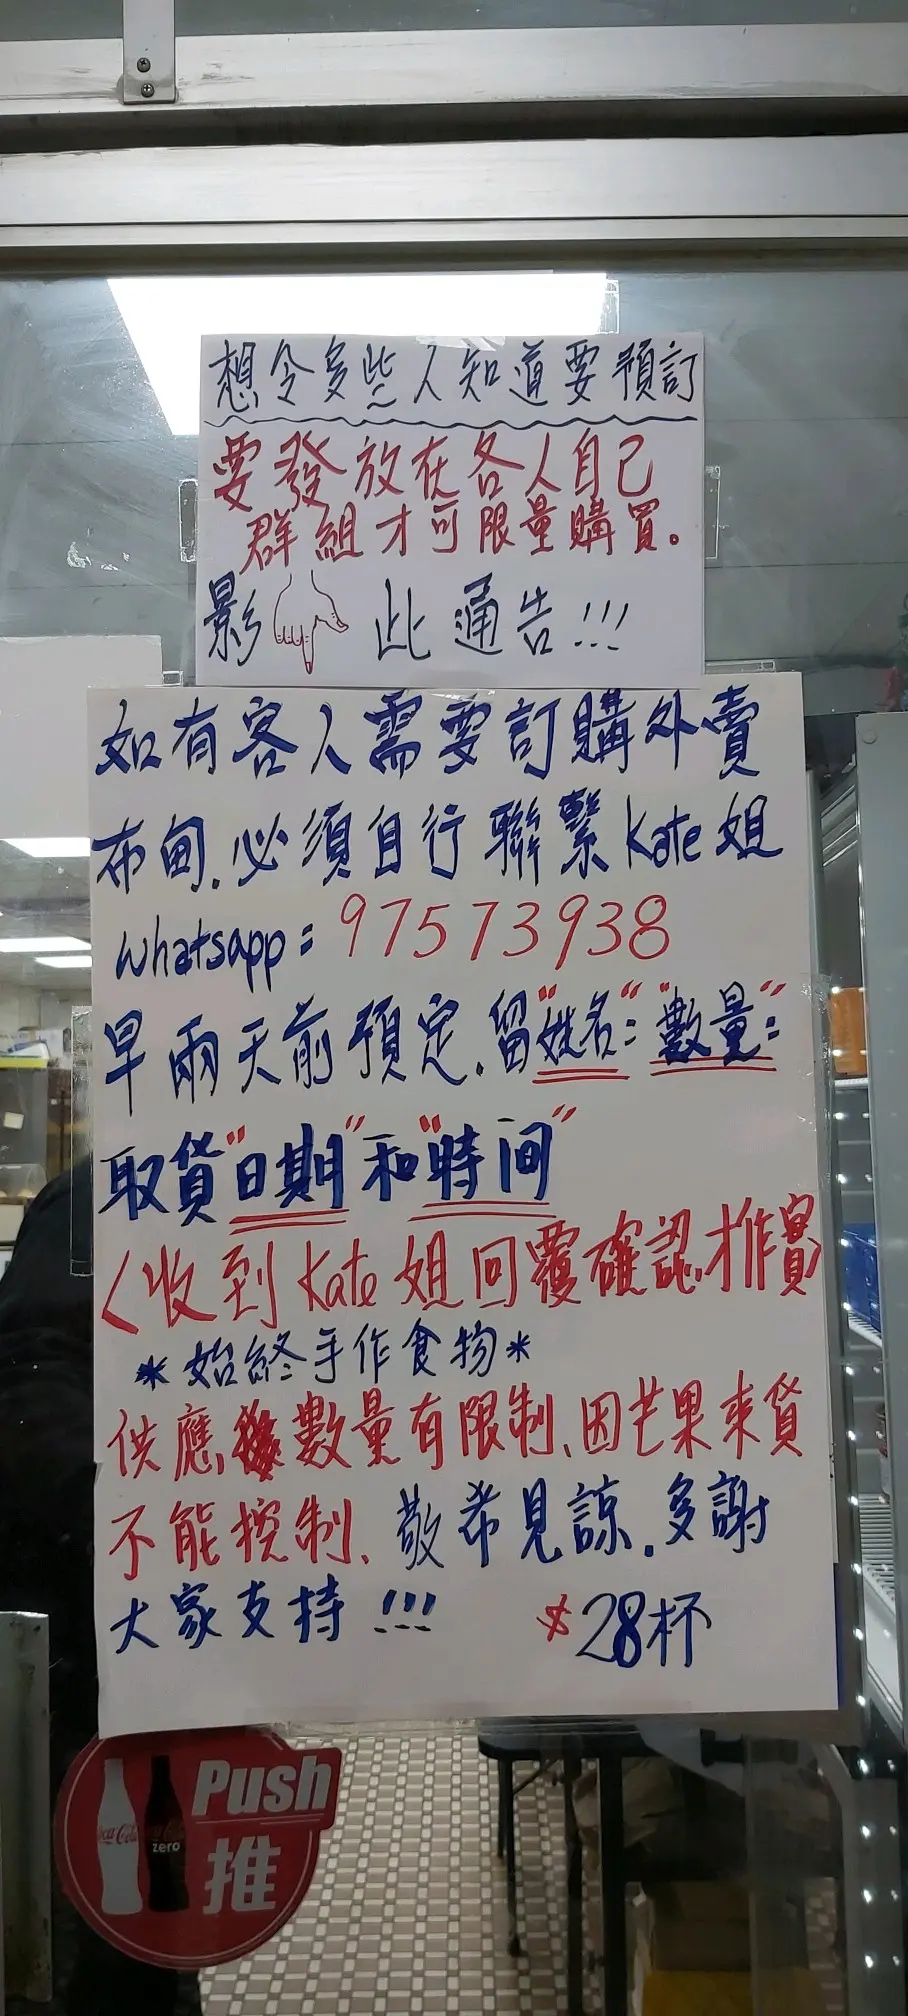 想令多些人知道要預訂
要發放在各人自己
群組才可限量購買。
影 此通告!!!
如有客人需要訂購外賣
布甸.必須自行聯繫Kate姐
whatsapp: 97573938
早兩天前預定.留"姓名": "數量":
取貨"日期"和"時间"
<收到Kate姐回覆確認才作實>
*始終手作食物*
供應數量有限制、因芒果來貨
不能控制、敬希見諒.多謝
大家支持!!! $28杯
Push
推
Coca-Cola
Coca-Cola
zero